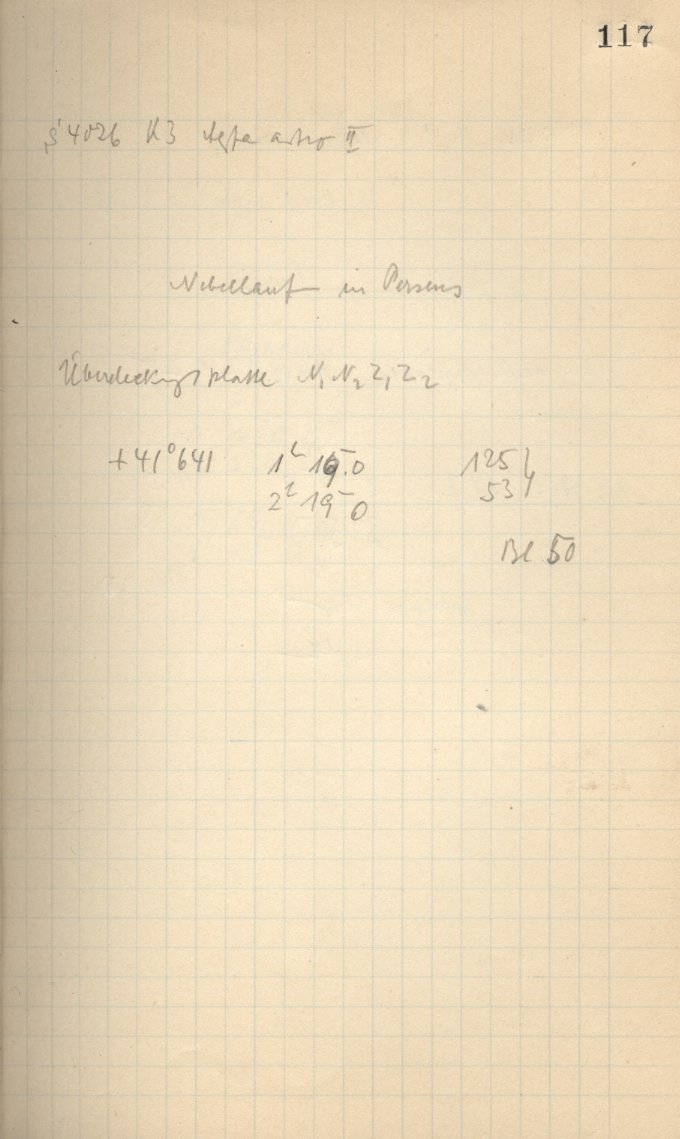 117
S 4026 K3 Agfa astro II
Nebelhauf in Perseus
Überdeckungsplatte N₁ N₂ Z₁ Z₂
+41°641 1ʰ 16.0 125
2ʰ 19 0 53
Bl 50